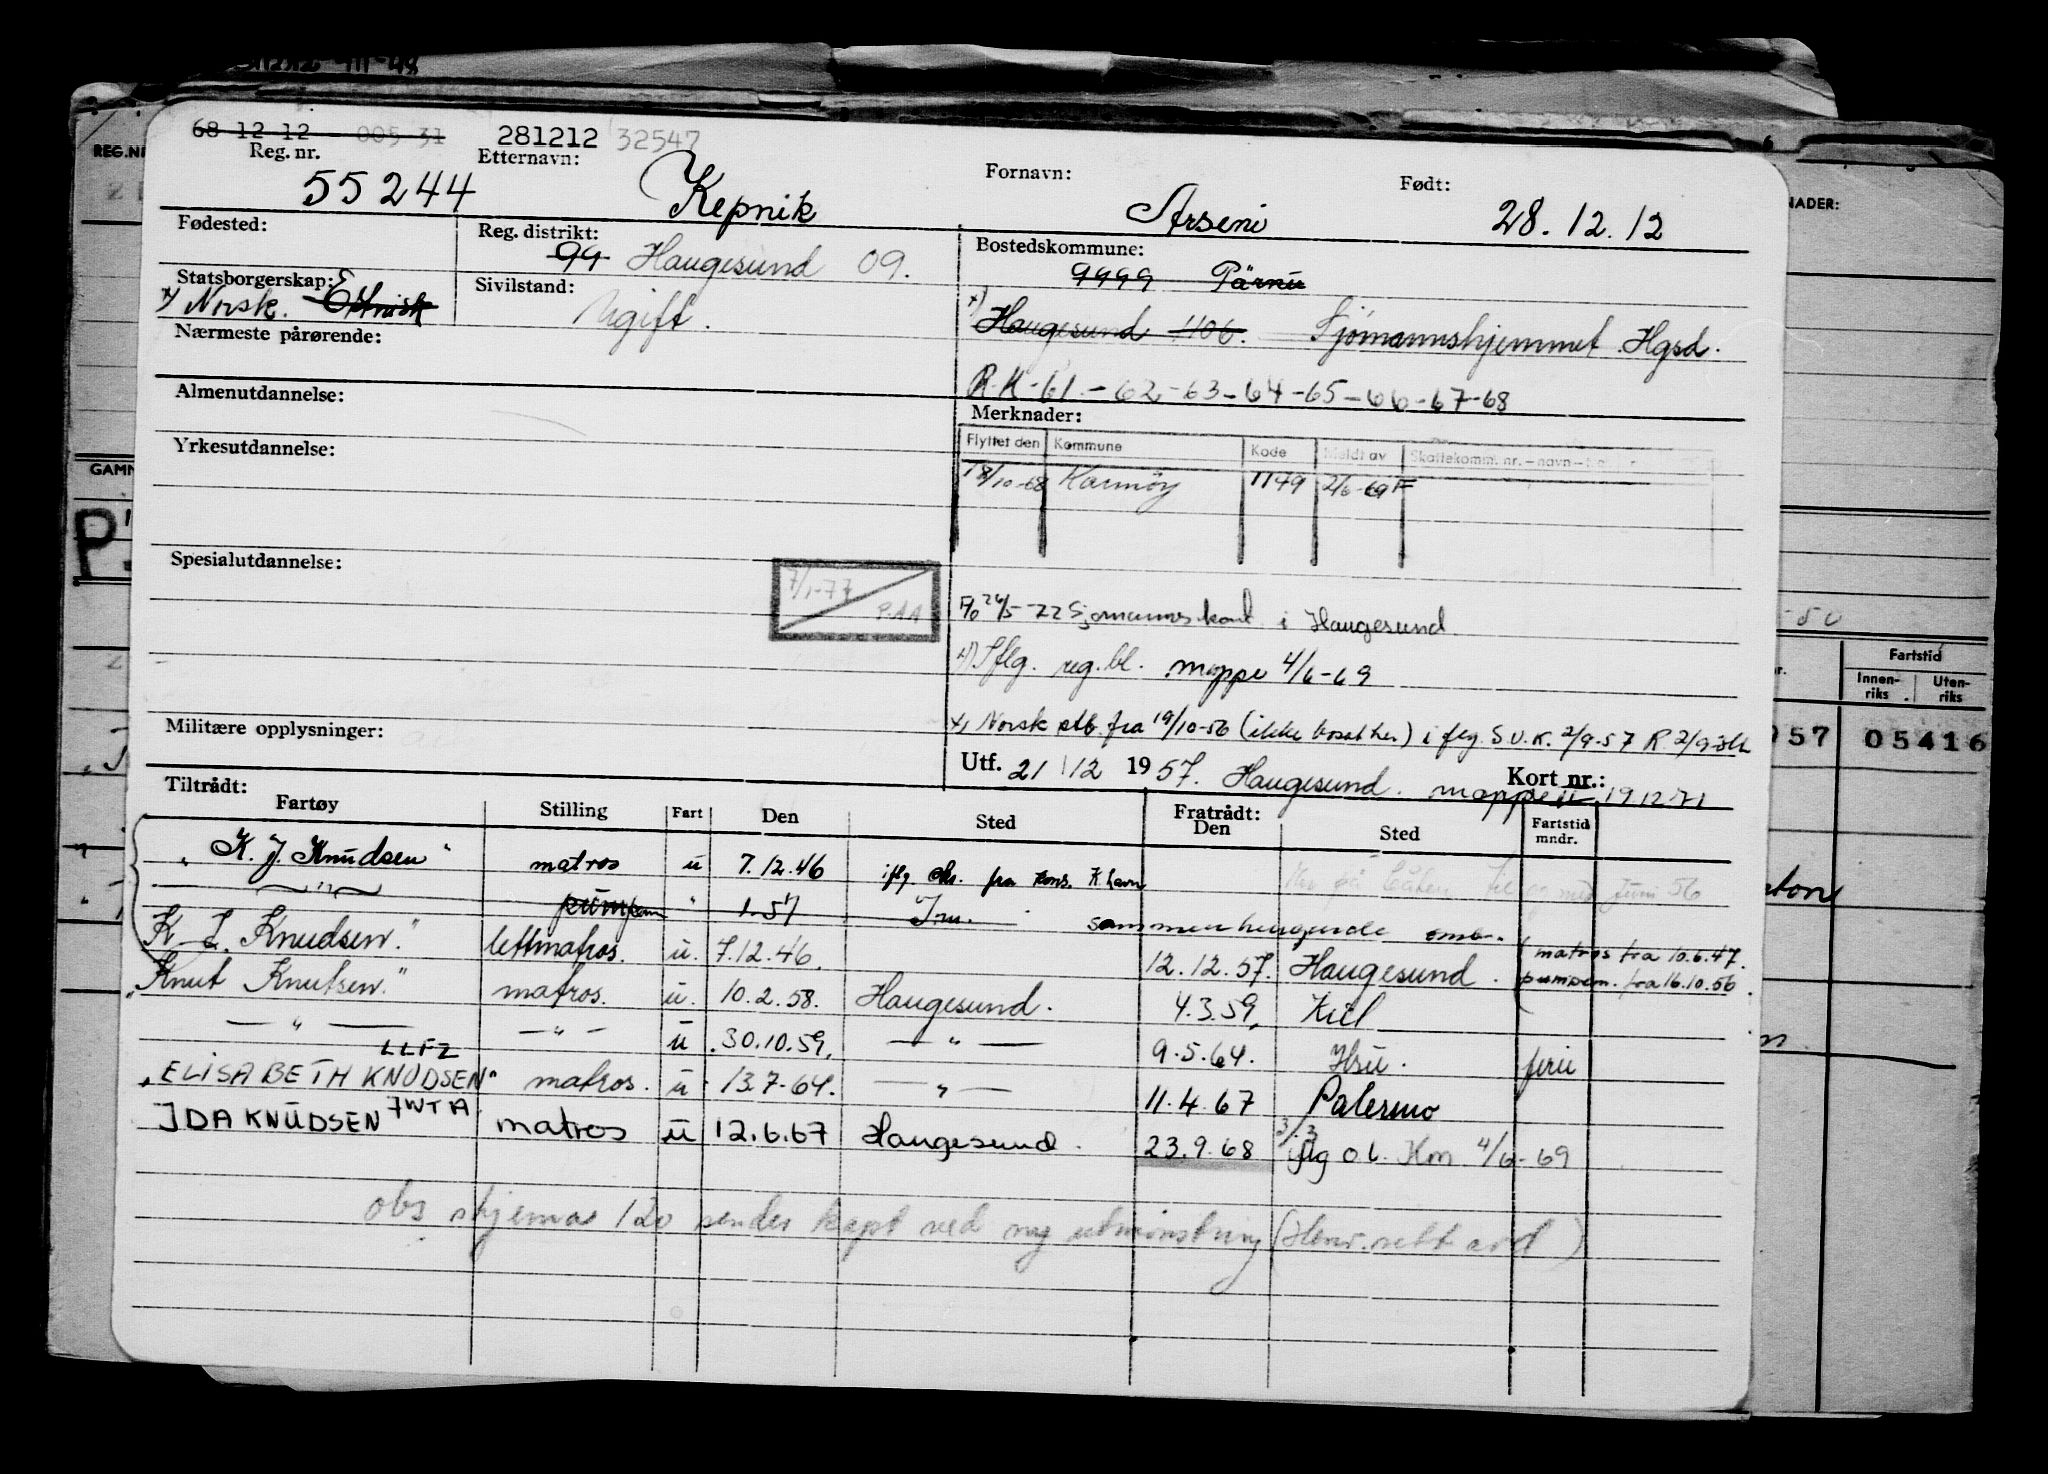 68 12 12 - 005 31 281212 32547
Reg. nr. Etternavn: Fornavn: Født:
55244 Kepnik Arseni 28.12.12
Fødested: Reg. distrikt: Bostedskommune:
99 Haugesund 09. 9999 Pärnu
Statsborgerskap: Sivilstand:
x) Norsk. Estnisk Ugift. x) Haugesund 1106. Sjømannshjemmet Hgsd.
Nærmeste pårørende:
R.K-61-62-63-64-65-66-67-68
Almenutdannelse: Merknader:
Flyttet den Kommune Kode Meldt av Skattekomm. nr. - navn -
Yrkesutdannelse:
18/10-68 Karmøy 1149 2/6-69 F
Spesialutdannelse:
7/1-77 P.AA
F/o 26/5-72 Sjømannskont. i Haugesund
x) Iflg. reg.bl. mappe 4/6-69
Militære opplysninger:
x) Norsk stb. fra 19/10-56 (ikke bosatt her) iflg. S.U.K. 2/9-57 R. 2/9
Utf. 21/12 1957. Haugesund. Kort nr.:
mappe II 19.12.71
Tiltrådt: Fratrådt:
Fartøy Stilling Fart Den Sted Den Sted Fartstid mndr.
"K. J. Knudsen" matros u 7.12.46 iflg. fra kons. K.havn til og med juni 56
— " — pumpem " 1.57 sammenhengende omb.
K. J. Knudsen." lettmatros. u. 7.12.46. 12.12.57. Haugesund. matros fra 10.6.47.
pumpem. fra 16.10.56.
"Knut Knutsen." matros. u. 10.2.58. Haugesund. 4.3.59. Kiel
— " — — " — u .30.10.59. — " — 9.5.64. Hsu. ferie
LLFZ
"ELISABETH KNUDSEN" matros. u 13.7-64. — " — 11.4.67 Palermo
IDA KNUDSEN JWTA matros u 12.6.67 Haugesund. 23.9.68 iflg o.b. Km 4/6-69
3/3
obs skjema 120 sendes kapt ved ny utmønstring
REG.NR
GAMM
P
NADER:
-50
Fartstid
Innen-riks Uten-riks
957 05416